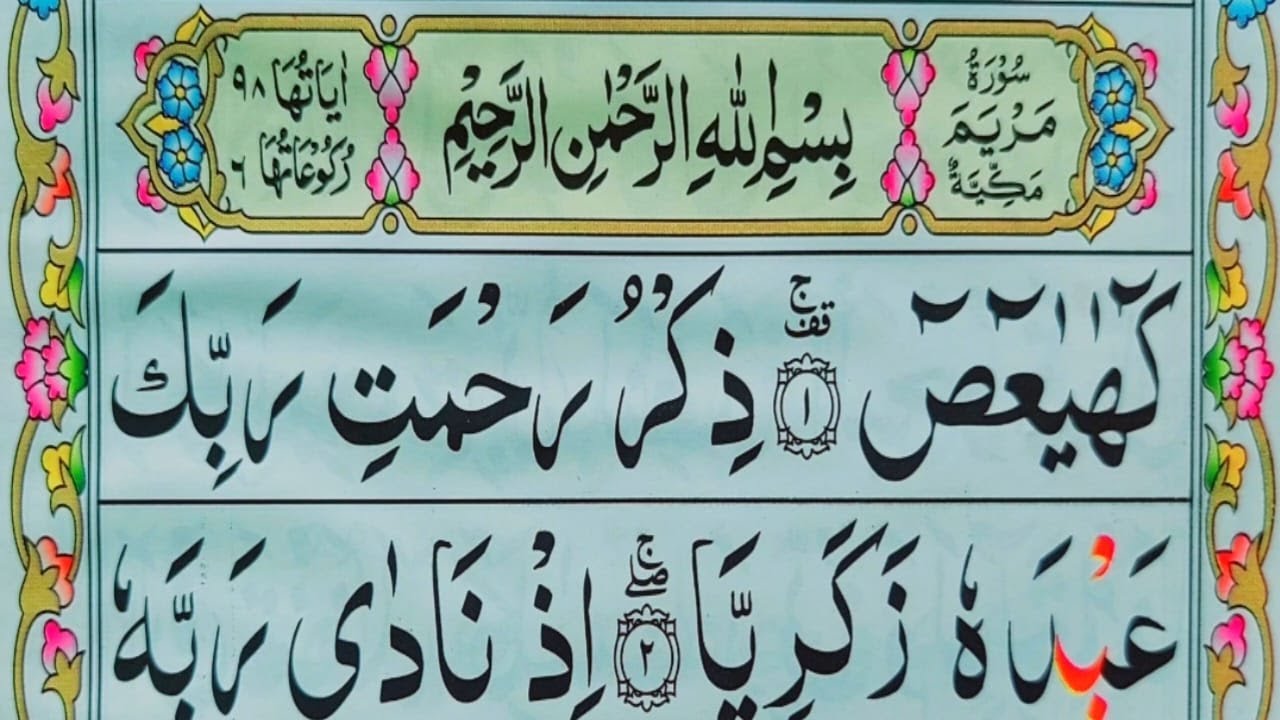 سُوْرَةُ مَرْيَمَ مَكِّيَّةٌ
بِسْمِ اللّٰهِ الرَّحْمٰنِ الرَّحِيْمِ
اٰيَاتُهَا ٩٨
رُكُوْعَاتُهَا ٦
كٓهٰيٰعٓصٓ ۝١ قف ج ذِكْرُ رَحْمَتِ رَبِّكَ
عَبْدَهٗ زَكَرِيَّا ۝٢ صلے ج اِذْ نَادٰى رَبَّهٗ